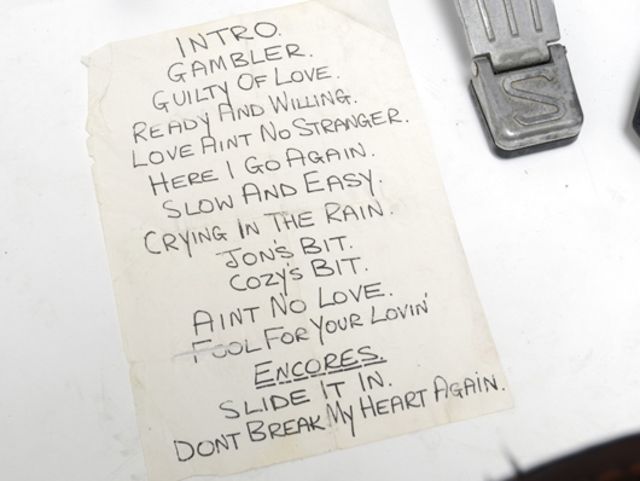 INTRO.
GAMBLER.
GUILTY OF LOVE.
READY AND WILLING.
LOVE AINT NO STRANGER.
HERE I GO AGAIN.
SLOW AND EASY.
CRYING IN THE RAIN.
JON'S BIT.
COZY'S BIT.
AINT NO LOVE.
FOOL FOR YOUR LOVIN'
ENCORES.
SLIDE IT IN.
DONT BREAK MY HEART AGAIN.
S